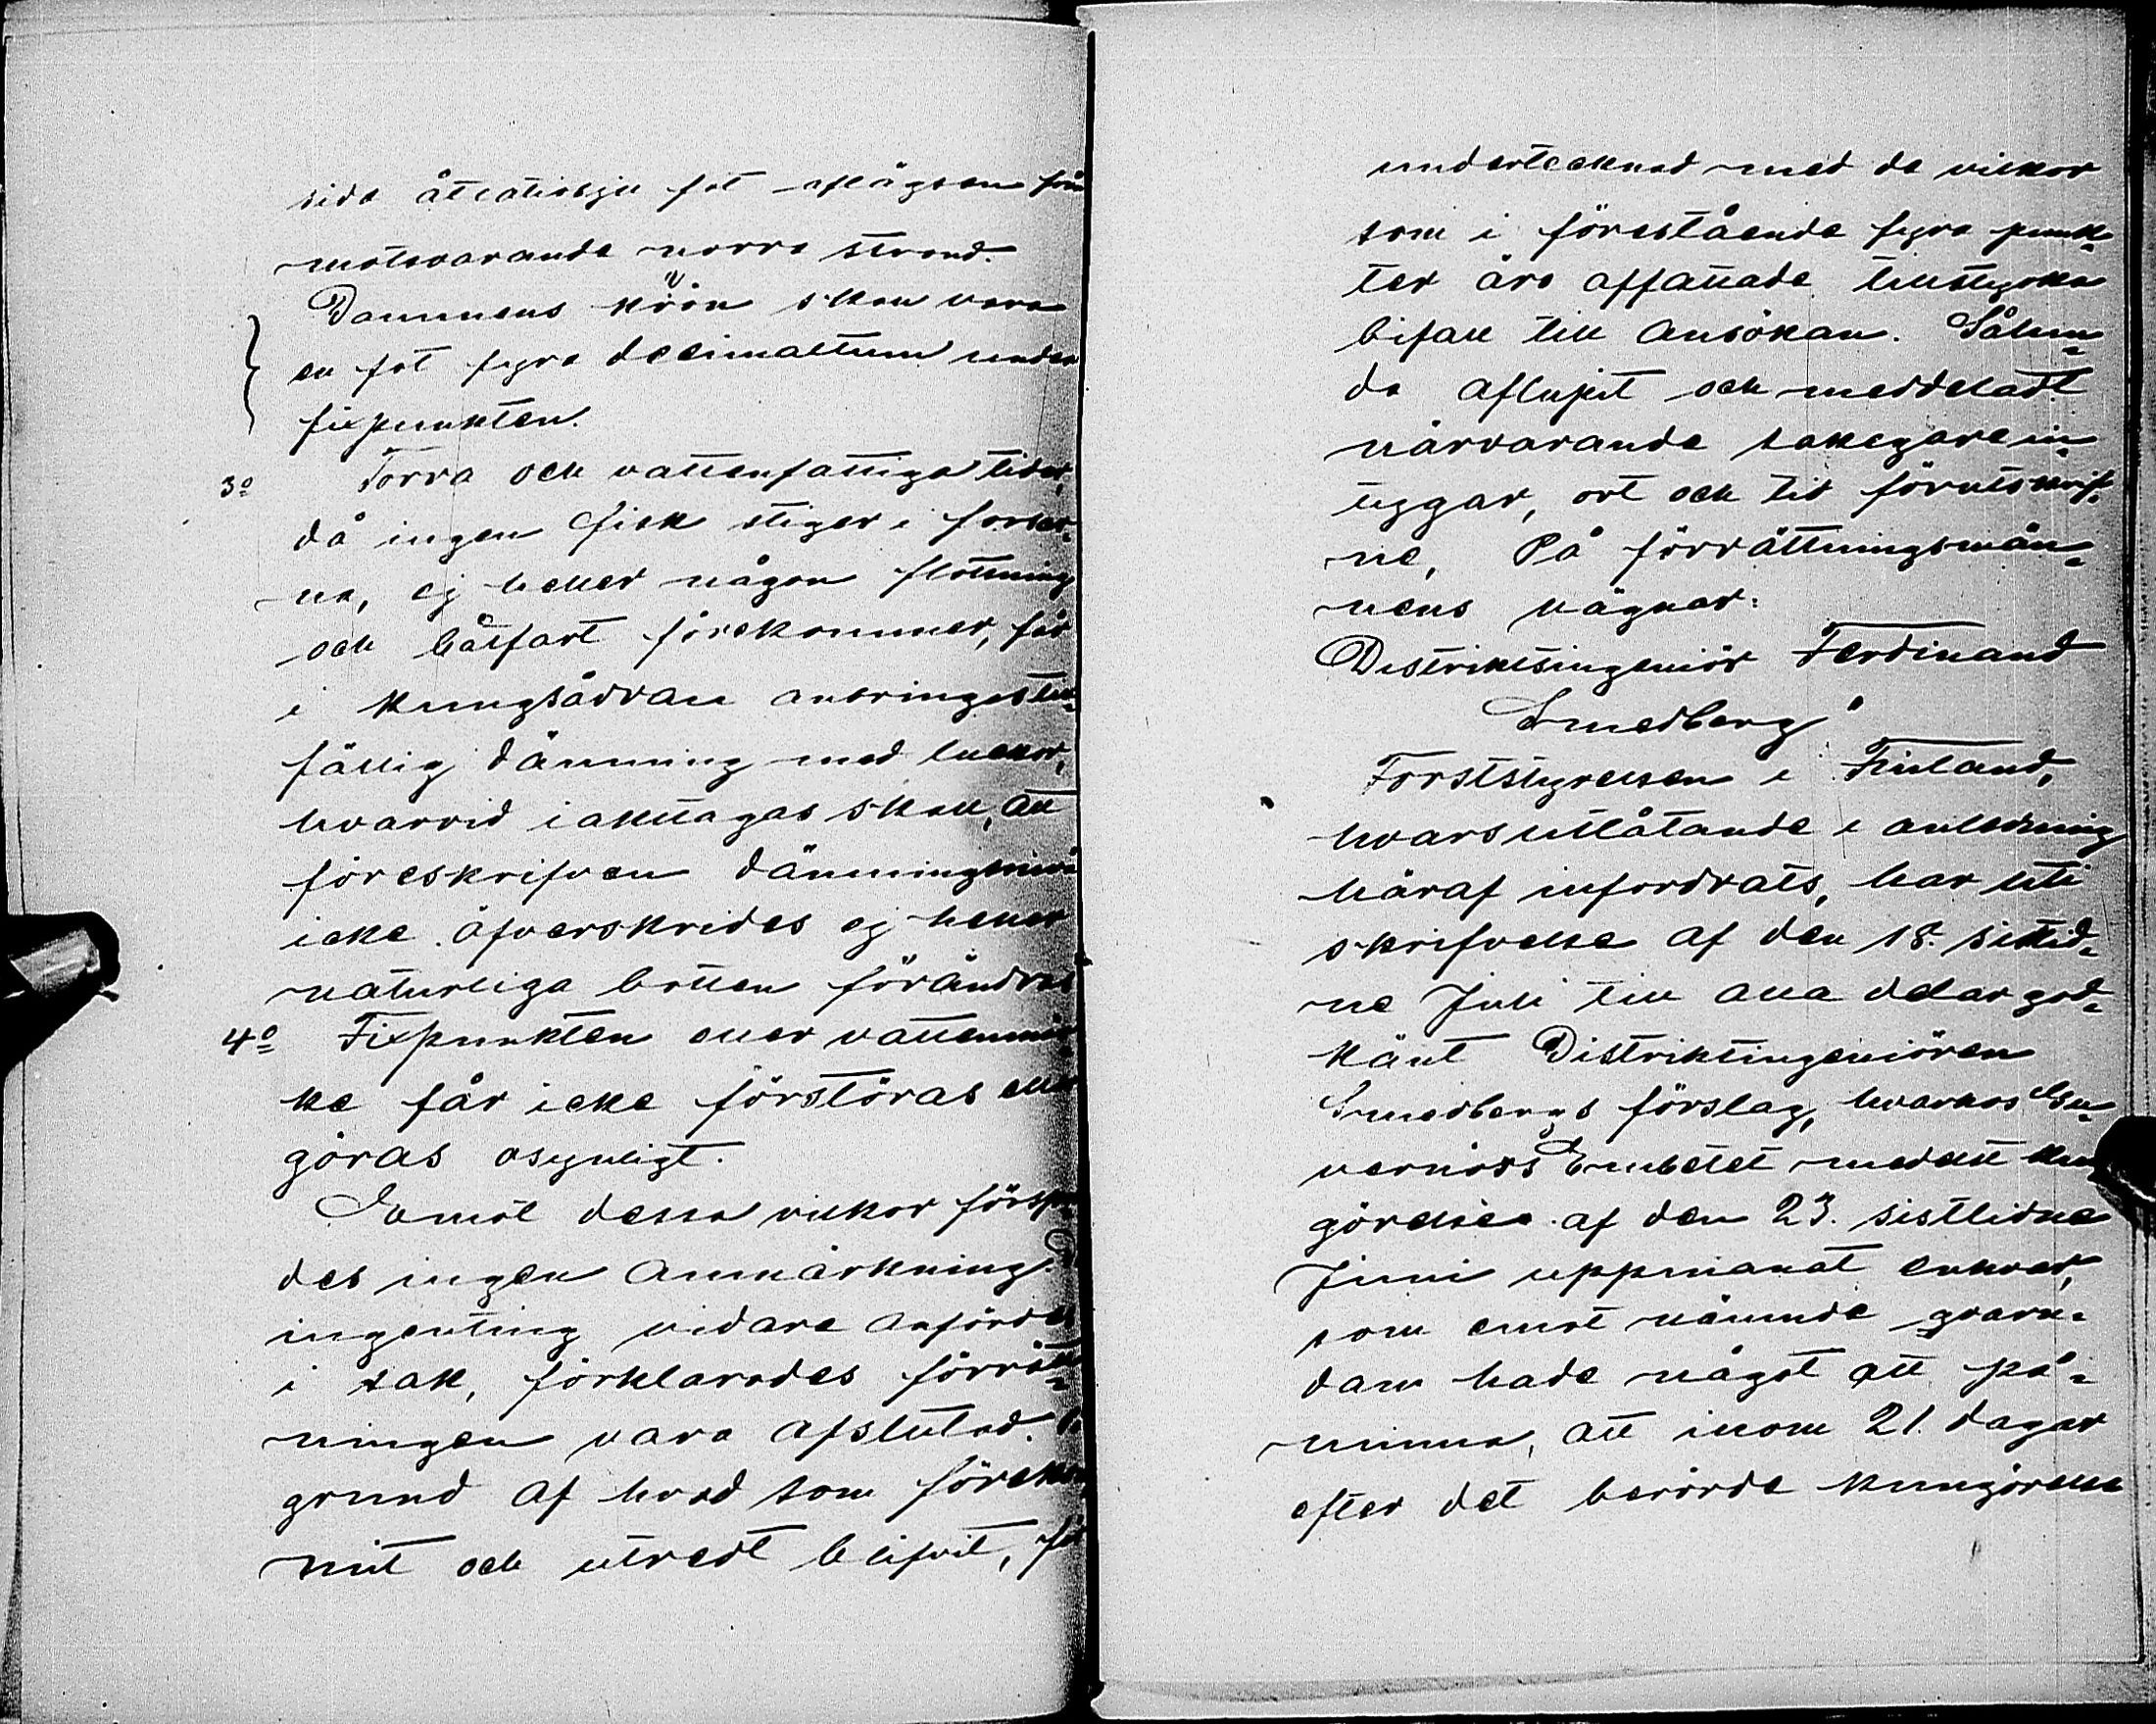 sida åttatiosju fot aflägsen från
motsvarande norra strand.
Dammens krön skall vara
en fot fyra decimaltum under
fixpunkten.
3o Torra och vattenfattiga tider,
då ingen fisk stiger i forsar¬
na, ej heller någon flottning
och båtfart förekommer, får
i kungsådran anbringas till¬
fällig dämning med luckor,
hvarvid iakttagas skall, att
föreskrifven dämningsnivå
icke öfverskrides ej heller
naturliga botten förändras
4o Fixpunkten eller vattenmär¬
ke får icke förstöras eller
göras osynligt.
Emot dessa vilkor förspor¬
des ingen anmärkning. Då
ingenting vidare anfördes
i sak, förklarades förrätt¬
ningen vara afslutad. På
grund af hvad som förekom¬
mit och utredt blifvit, får
undertecknad med de vilkor
som i förestående fyra punk¬
ter äro affattade tillstyrka
bifall till ansökan. Sålun¬
da aflupit och meddeladt
närvarande sakegare in¬
tyggar, ort och tid förutskrif¬
ne, På förrättningsmän¬
nens vägnar:
Distriktsingeniör Ferdinand
Smedberg"
Forststyrelsen i Finland,
hvars utlåtande i anledning
häraf infordrats, har uti
skrifvelse af den 18. sistlid¬
ne Juli till alla delar god¬
känt Distriktingeniören
Smedbergs förslag, hvarhos Gu¬
vernörs Embetet medelst kun
görelse af den 23. sistlidne
Juni uppmanat enhvar,
som emot nämnde qvarn¬
dam hade något att på¬
minna, att inom 21. dagar
efter det berörde kungörelse